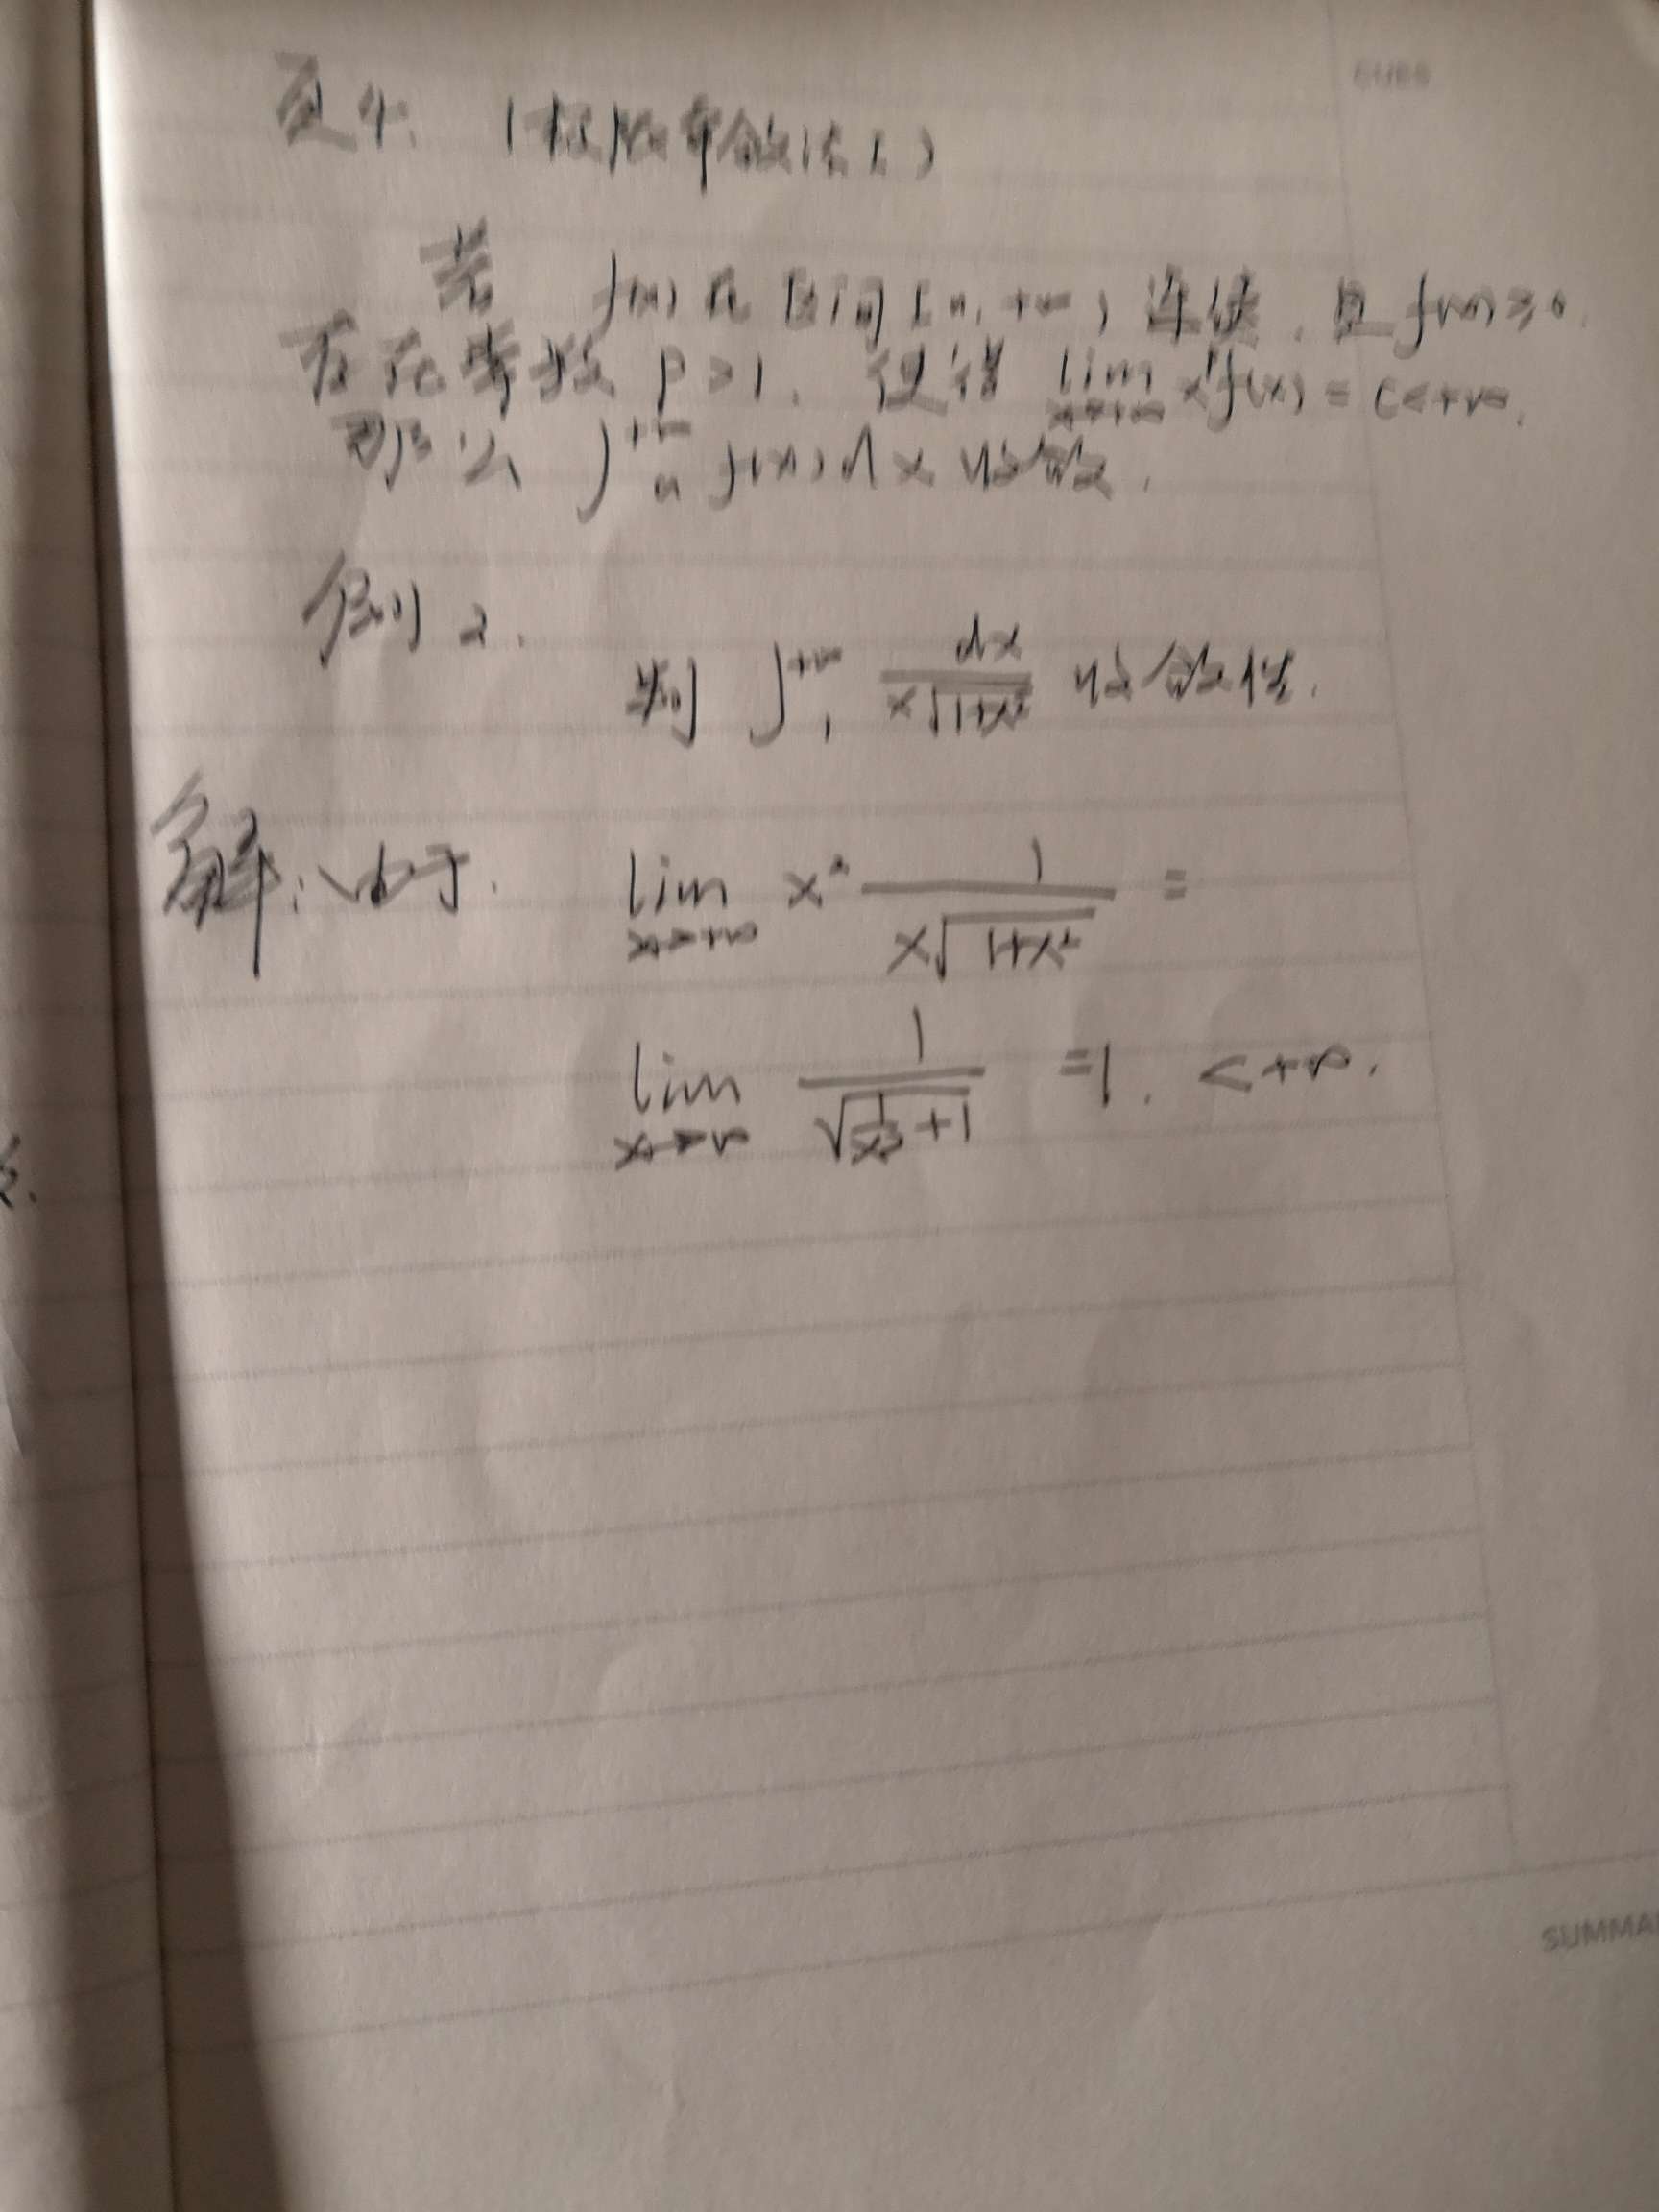 CUES
定4. (极限审敛法1)
若 f(x)在区间[a,+∞)连续.且f(x)≥0.
存在常数 p>1. 使得 lim x→+∞ xᵖf(x) = c<+∞.
那么 ∫ₐ⁺∞ f(x)dx 收敛.
例2.
判 ∫₁⁺∞ dx/(x√(1+x²)) 收敛性.
解:由于. lim x→+∞ x² 1/(x√(1+x²)) =
lim x→∞ 1/√(1/x²+1) =1. <+∞.
SUMMA